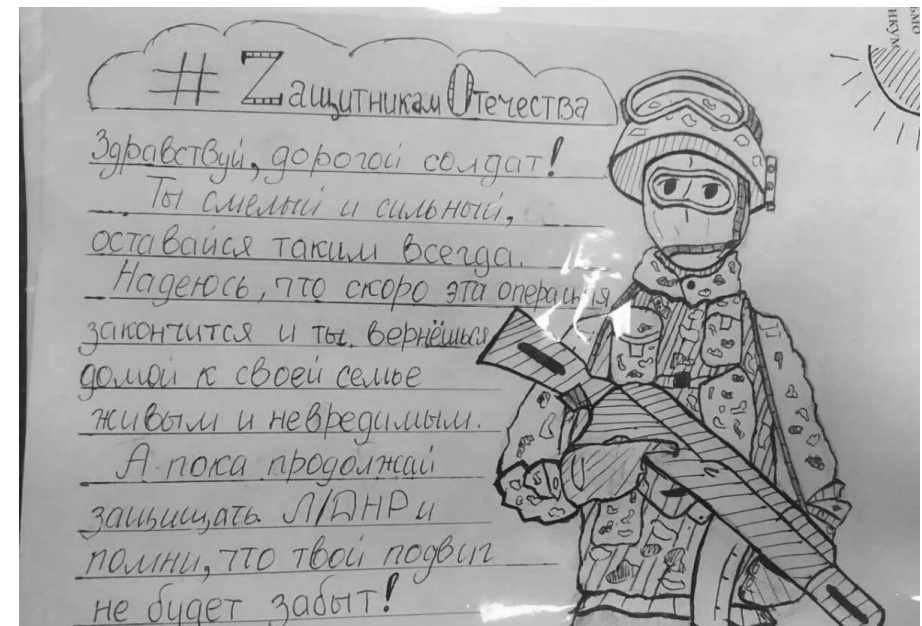 # Zащитникам Отечества
Здравствуй, дорогой солдат!
Ты смелый и сильный,
оставайся таким всегда.
Надеюсь, что скоро эта операция
закончится и ты вернёшься
домой к своей семье
живым и невредимым.
А пока продолжай
защищать Л/ДНР и
помни, что твой подвиг
не будет забыт!